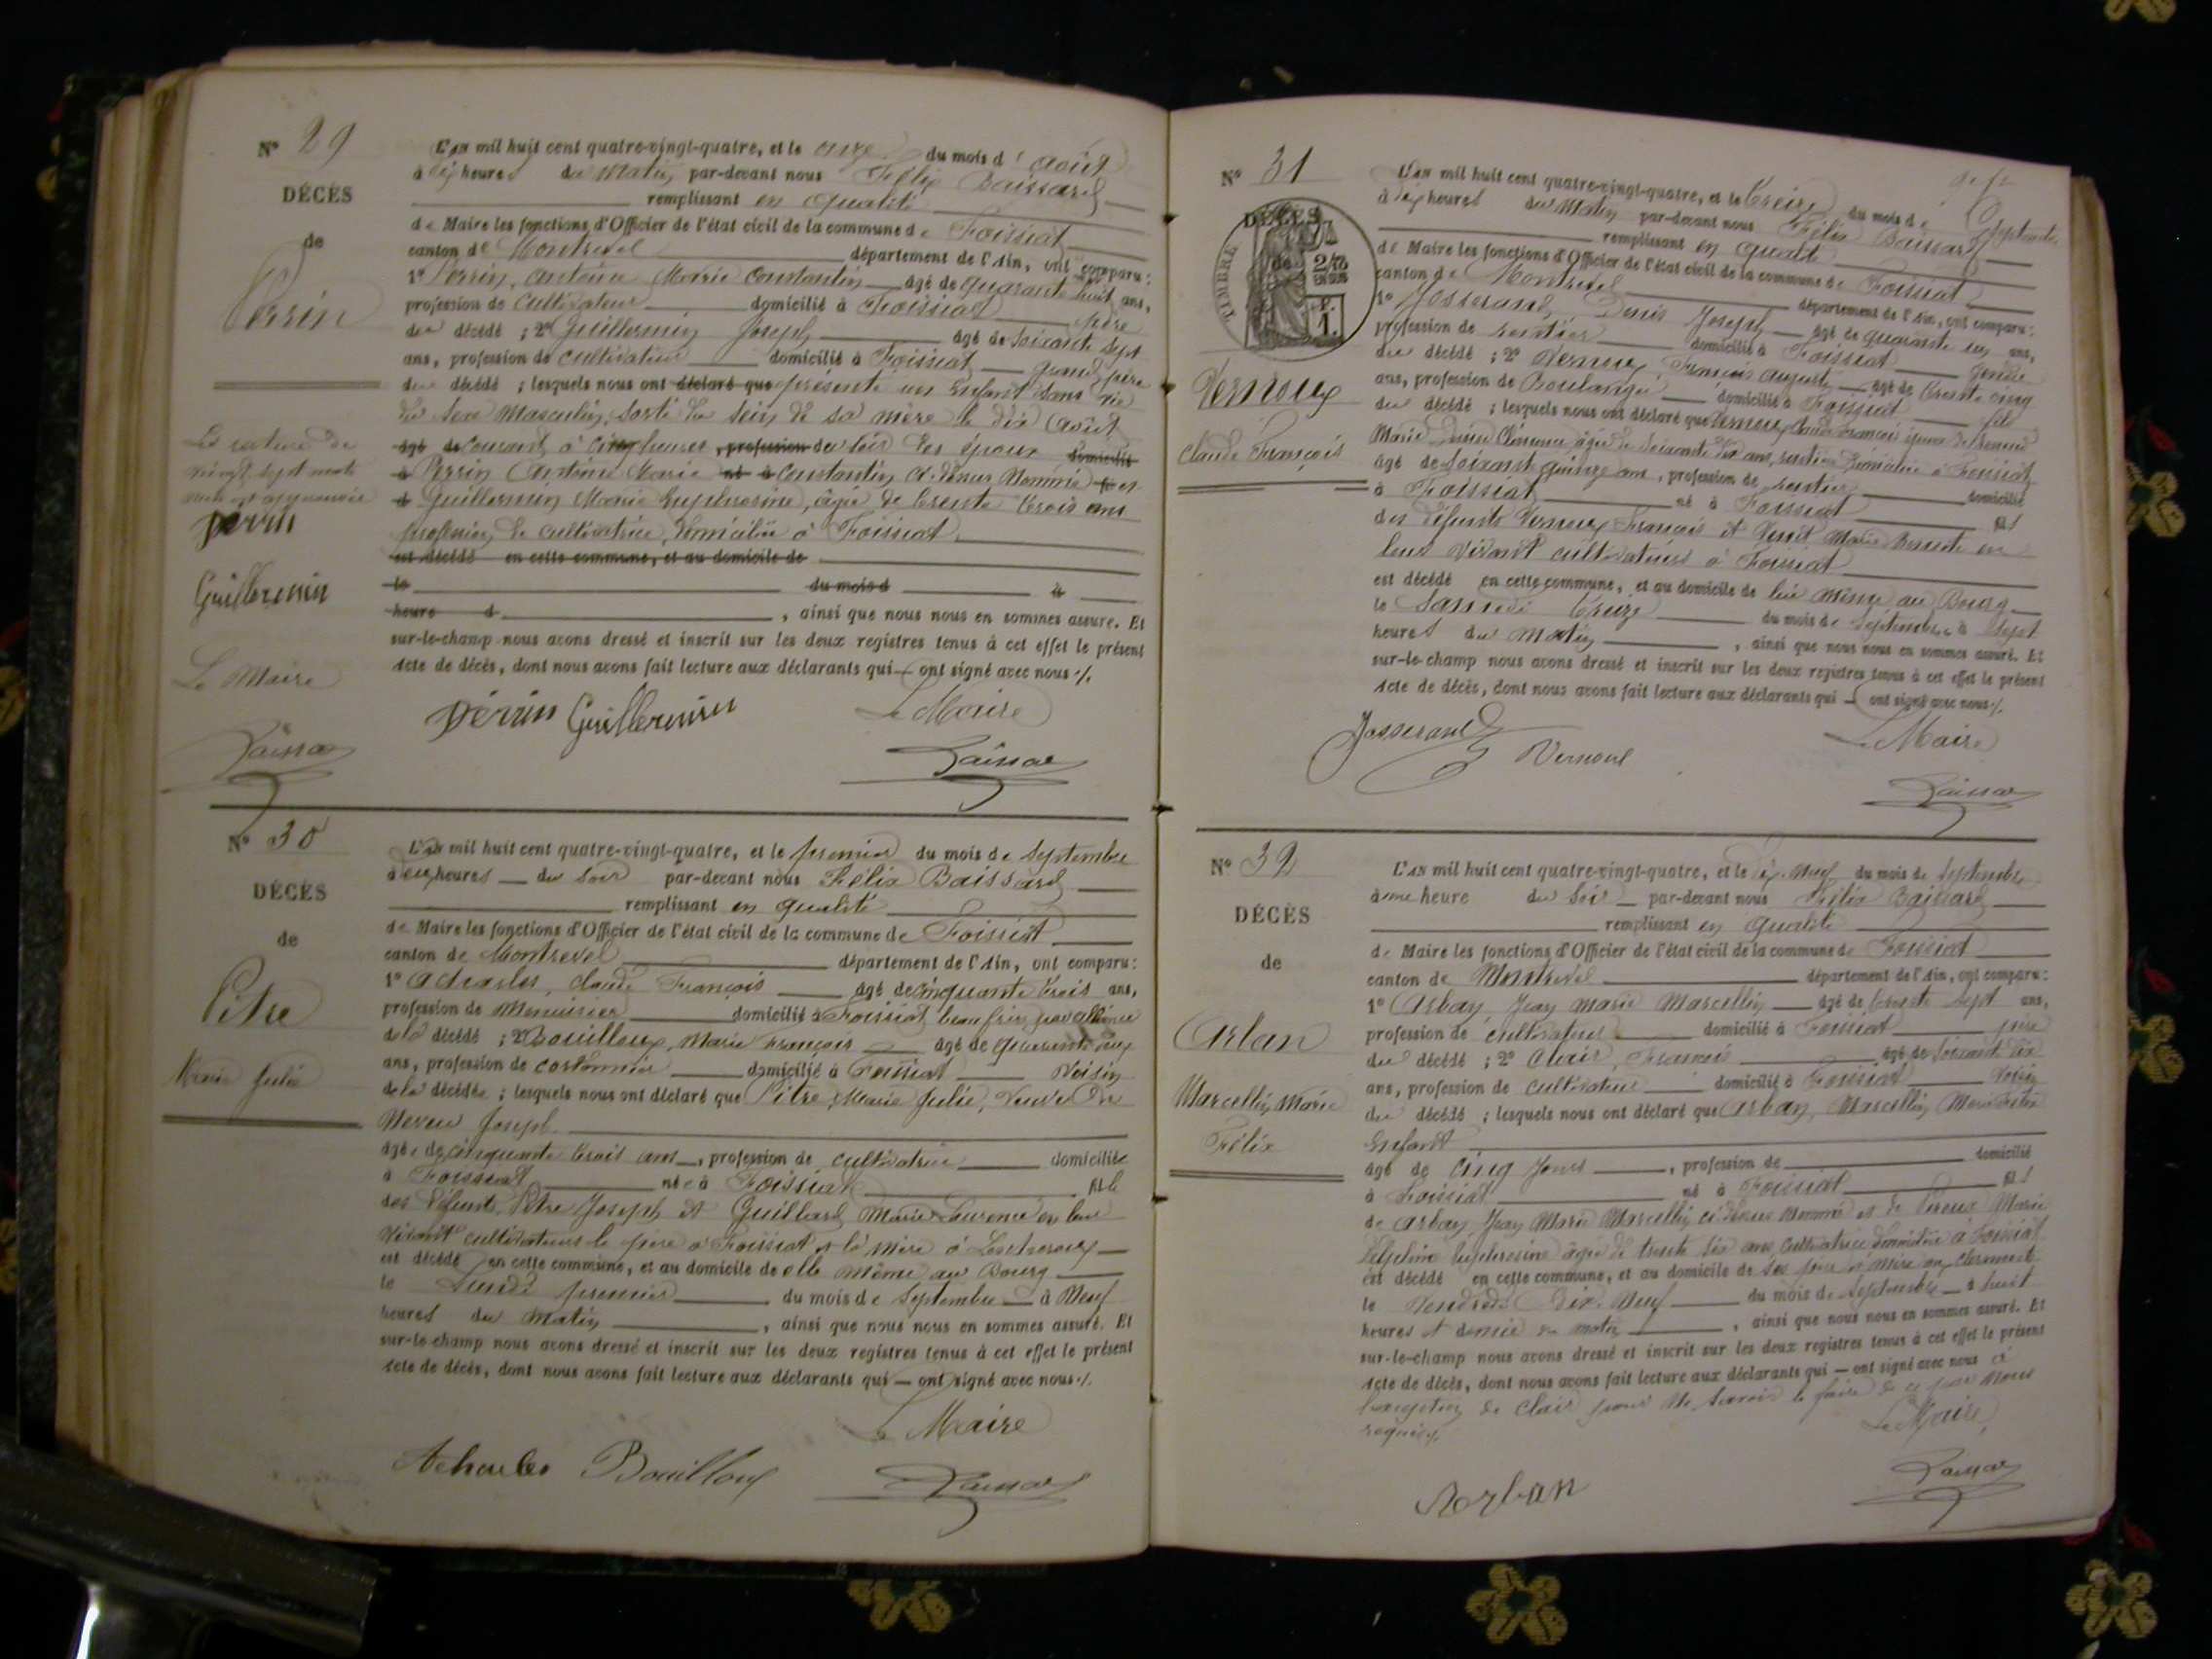 N° 29
DÉCÈS
de
Perrin
L'AN mil huit cent quatre-vingt-quatre, et le onze du mois d'août
à dix heures du Matin par-devant nous Félix Baissard
remplissant en qualité
de Maire les fonctions d'Officier de l'état civil de la commune de Foissiat
canton de Montrevel département de l'Ain, ont comparu:
1° Perrin, Antoine Marie Constantin âgé de quarante huit ans,
profession de cultivateur domicilié à Foissiat père
du décédé ; 2° Guillermin Joseph âgé de soixante sept
ans, profession de cultivateur domicilié à Foissiat grand père
du décédé ; lesquels nous ont déclaré que présenté un Enfant sans vie
du sexe Masculin, sorti du sein de sa mère le dix août
âgé de courant à cinq heures , profession du soir des époux domicilié
à Perrin Antoine Marie né à Constantin ci-dessus Nommé fil et
d Guillermin Marie Euphrosine, âgée de trente trois ans
profession de cultivatrice, domiciliée à Foissiat
est décédé en cette commune, et au domicile de
le du mois d à
heure d , ainsi que nous nous en sommes assuré. Et
sur-le-champ nous avons dressé et inscrit sur les deux registres tenus à cet effet le présent
Acte de décès, dont nous avons fait lecture aux déclarants qui ont signé avec nous ./.
La rature de
vingt sept mots
approuvée
perrin
Guillermin
Le Maire
perrin Guillermin
Le Maire
N° 30
DÉCÈS
de
Pitre
Marie Julie
L'AN mil huit cent quatre-vingt-quatre, et le premier du mois de Septembre
heures du soir par-devant nous Félix Baissard
remplissant en qualité
de Maire les fonctions d'Officier de l'état civil de la commune de Foissiat
canton de Montrevel département de l'Ain, ont comparu:
1° Acharles, Claude François âgé de cinquante trois ans,
profession de Menuisier domicilié à Foissiat beau frère par alliance
de la décédé ; 2° Bouilloux, Marie François âgé de quarante
ans, profession de cordonnier domicilié à Foissiat voisin
de la décédée ; lesquels nous ont déclaré que Pitre, Marie Julie, veuve de
Neveu Joseph
âgée de cinquante trois ans, profession de cultivatrice domiciliée
à Foissiat née à Foissiat fille
des défunts Pitre Joseph et Guillard Marie Laurence en leur
vivant cultivateurs le père à Foissiat et la mère à Lescheroux
est décédé en cette commune, et au domicile de elle même au Bourg
le Lundi premier du mois de Septembre à Neuf
heures du matin , ainsi que nous nous en sommes assuré. Et
sur-le-champ nous avons dressé et inscrit sur les deux registres tenus à cet effet le présent
Acte de décès, dont nous avons fait lecture aux déclarants qui ont signé avec nous ./.
Le Maire
Acharles Bouilloux
N° 31
DÉCÈS
de
TIMBRE
Vernoux
Claude François
L'AN mil huit cent quatre-vingt-quatre, et le treize du mois de Septembre
à dix heures du Matin par-devant nous Félix Baissard
remplissant en qualité
de Maire les fonctions d'Officier de l'état civil de la commune de Foissiat
canton de Montrevel département de l'Ain, ont comparu:
1° Josserand, Denis Joseph âgé de quarante un ans,
profession de rentier domicilié à Foissiat gendre
du décédé ; 2° Vernoux, François Auguste âgé de trente cinq
ans, profession de Boulanger domicilié à Foissiat fils
du décédé ; lesquels nous ont déclaré que Vernoux Claude François époux de
Marie Clémence, âgée de soixante dix ans, rentière domiciliée à Foissiat
âgé de soixante quinze ans, profession de rentier domicilié
à Foissiat né à Foissiat fils
des défunts Vernoux François et Marie en
leur vivant cultivateurs à Foissiat
est décédé en cette commune, et au domicile de lui même au Bourg
le Samedi treize du mois de Septembre à Sept
heures du Matin , ainsi que nous nous en sommes assuré. Et
sur-le-champ nous avons dressé et inscrit sur les deux registres tenus à cet effet le présent
Acte de décès, dont nous avons fait lecture aux déclarants qui ont signé avec nous ./.
Josserand
Vernoux
Le Maire
N° 32
DÉCÈS
de
Arban
Marcellin Marie
Félix
L'AN mil huit cent quatre-vingt-quatre, et le dix-neuf du mois de Septembre
à une heure du Soir par-devant nous Félix Baissard
remplissant en qualité
de Maire les fonctions d'Officier de l'état civil de la commune de Foissiat
canton de Montrevel département de l'Ain, ont comparu:
1° Arban Jean Marie Marcellin âgé de trente sept ans,
profession de cultivateur domicilié à Foissiat père
du décédé ; 2° Clair, François âgé de soixante dix
ans, profession de cultivateur domicilié à Foissiat voisin
du décédé ; lesquels nous ont déclaré que Arban, Marcellin Marie Félix
Enfant
âgé de cinq jours , profession de domicilié
à Foissiat né à Foissiat fils
de Arban Jean Marie Marcellin ci-dessus nommé et de Marie
Delphine Euphrosine âgée de trente six ans, cultivatrice domiciliée à Foissiat
est décédé en cette commune, et au domicile de ses père et mère
le Vendredi dix-neuf du mois de Septembre à huit
heures et demie du matin , ainsi que nous nous en sommes assuré. Et
sur-le-champ nous avons dressé et inscrit sur les deux registres tenus à cet effet le présent
Acte de décès, dont nous avons fait lecture aux déclarants qui ont signé avec nous à
l'exception de Clair pour ne savoir le faire de ce par nous
requis ./.
Le Maire
Arban